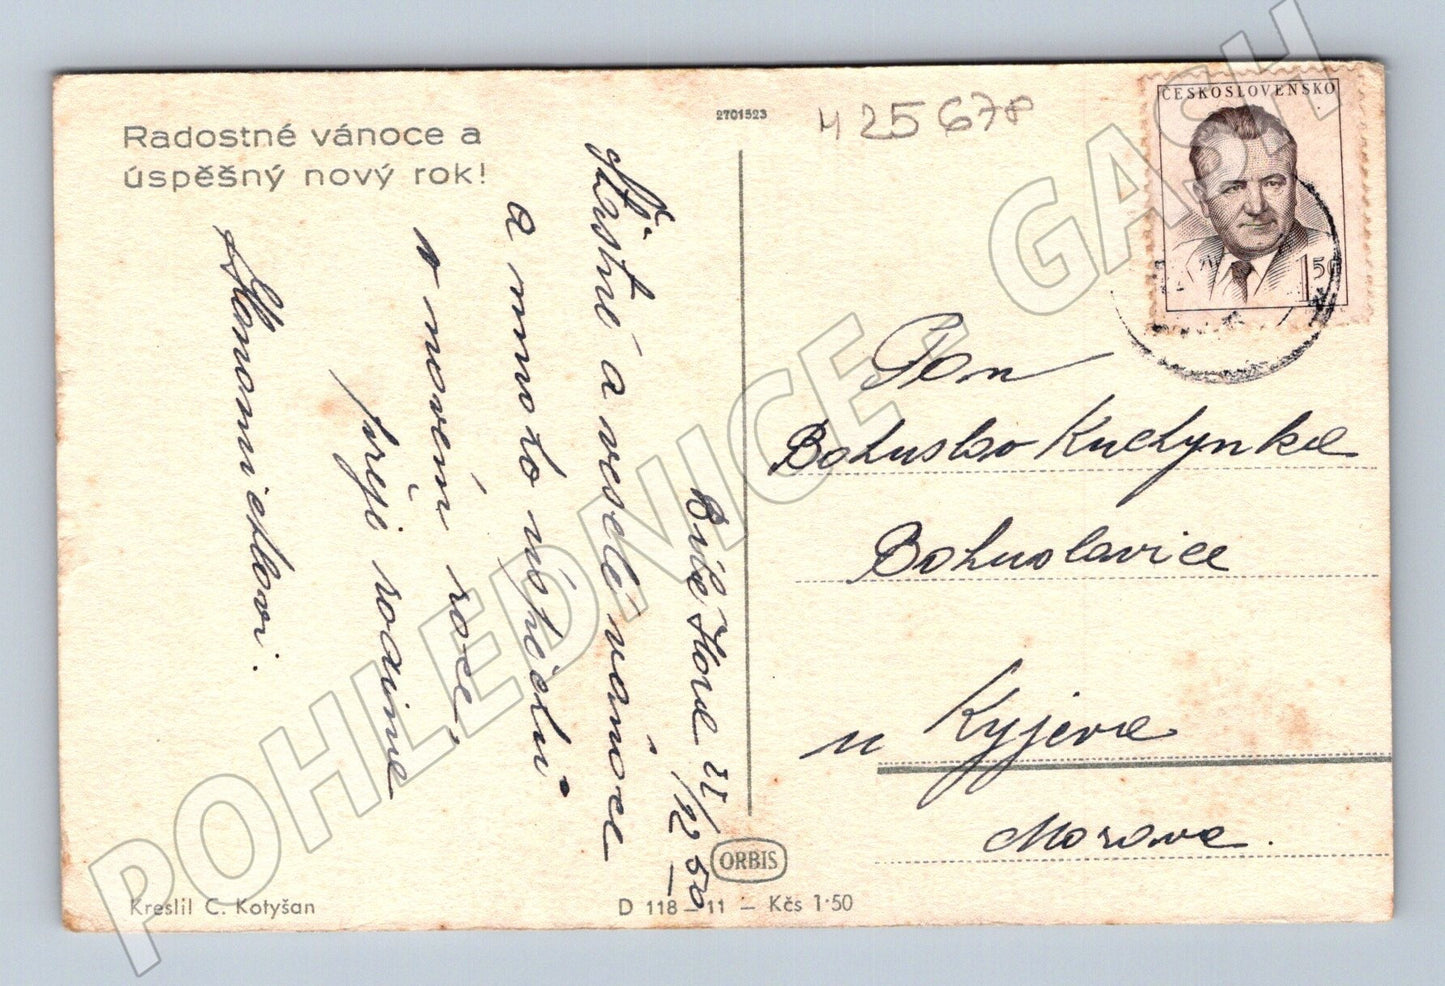 Radostné vánoce a
úspěšný nový rok!
2701523
425678
ČESKOSLOVENSKO
1 50
Bílé Hora 21/12 50
Šťastné a veselé vánoce
a mnoho úspěchů
v novém roce
přeji rodině
Pan
Bohuslav Kuchynka
Bohuslavice
u Kyjova
Morava.
ORBIS
Kreslil C. Kotyšan
D 118 – 11 – Kčs 1·50
POHLEDNICE - GASH